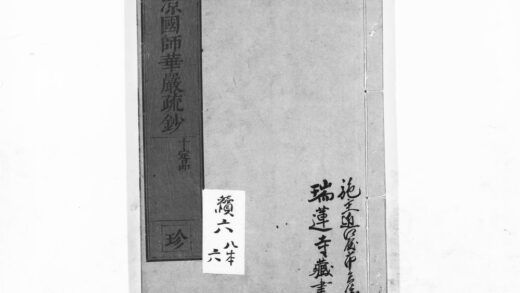 施主
瑞蓮寺藏書
涼國師華嚴疏鈔
十定品
珍
六 八本
六